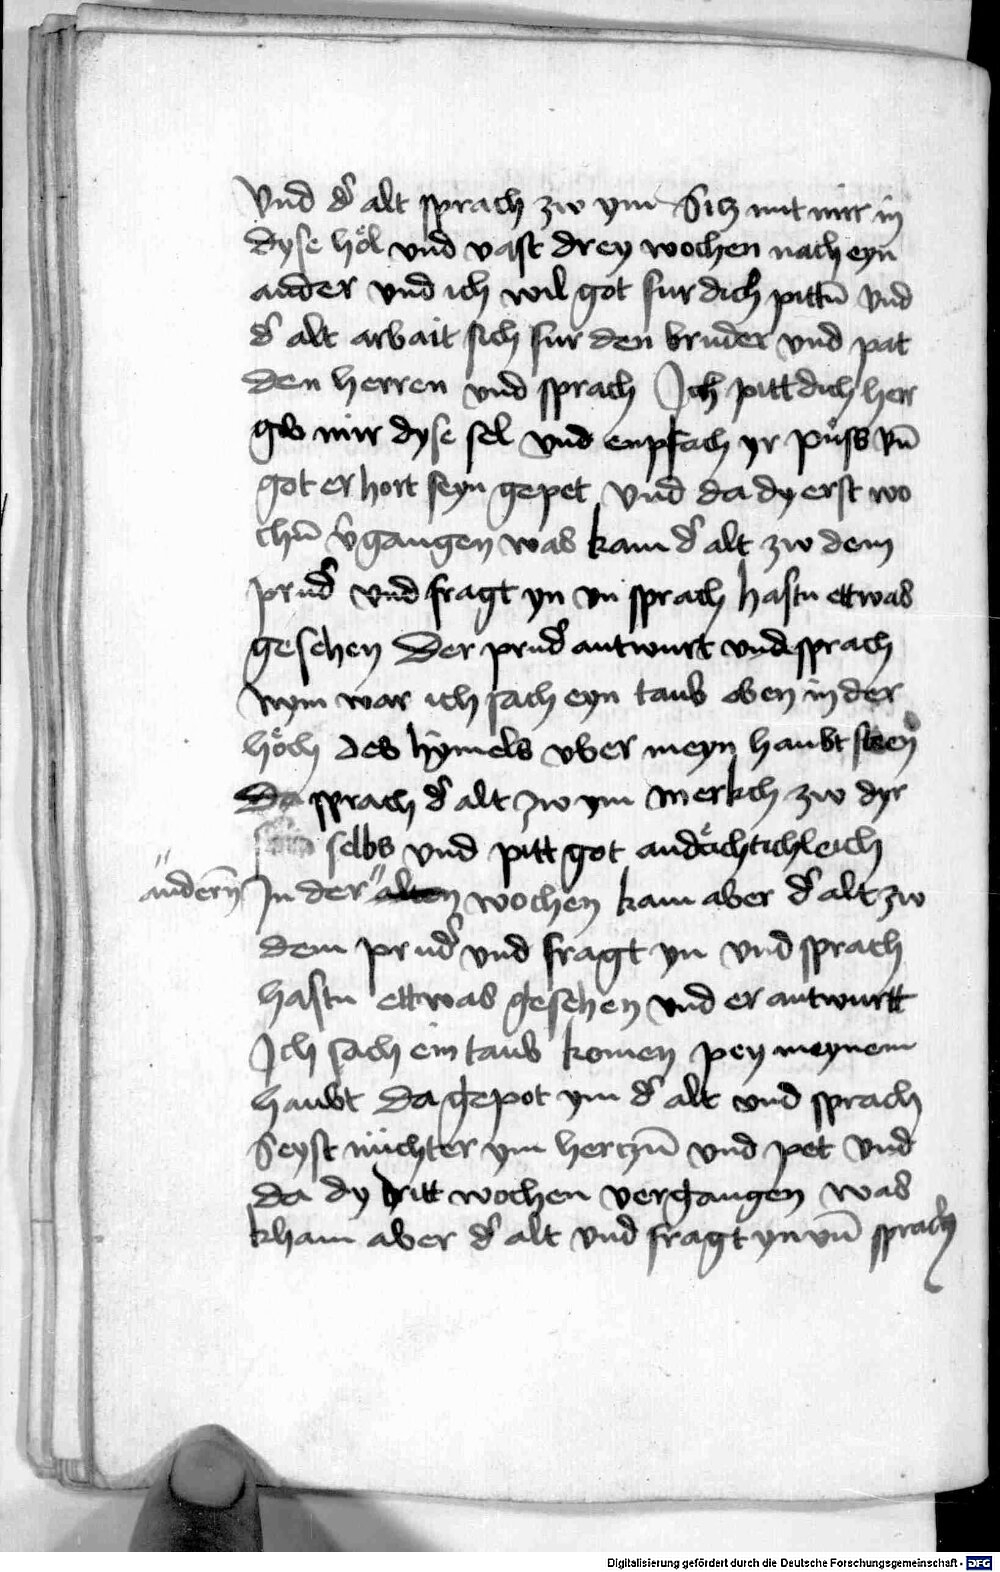 Vnd d͛ alt sprach zw ym Sitz mit mir in
dyse hoͤl vnd vast drey wochen nach eyn
ander vnd ich wil got fur dich pittn̄ vnd
d͛ alt arbait sich fur den bruder vnd pat
den herren vnd sprach Ich pitt dich herr
gib mir dyse sel vnd enpfach yr puͤss vn̄
got er hort seyn gepet Vnd da dy erst wo
chn̄ v͛gangen was kam d͛ alt zw dem
prud͛ vnd fragt yn vn sprach hastu ettwas
gesehen Der prud͛ antwurt vnd sprach
nym war ich sach eyn taub oben in der
hoͤch des hymels vber meyn haubt steen
Da sprach d͛ alt zw ym merkch zw dyr
selbs vnd pitt got andaͤchtichleich
andern̄ In der " alten wochen kam aber d͛ alt zw
dem prud͛ vnd fragt yn vnd sprach
hastu ettwas gesehen vnd er antwurtt
Ich sach ein taub komen pey meynem
haubt Da gepot ym d͛ alt vnd sprach
Seyst nuchter ym hertzn̄ vnd pet vnd
da dy dritt wochen vergangen was
kham aber d͛ alt vnd fragt yn vn̄ sprach
Digitalisierung gefördert durch die Deutsche Forschungsgemeinschaft - DFG